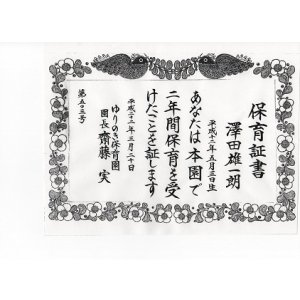 保育証書
澤田雄一朗
平成十二年五月三日生
あなたは本園で
二年間保育を受
けたことを証します
平成二十二年三月二十日
ゆりのき保育園
園長 齋藤 実
第五三号